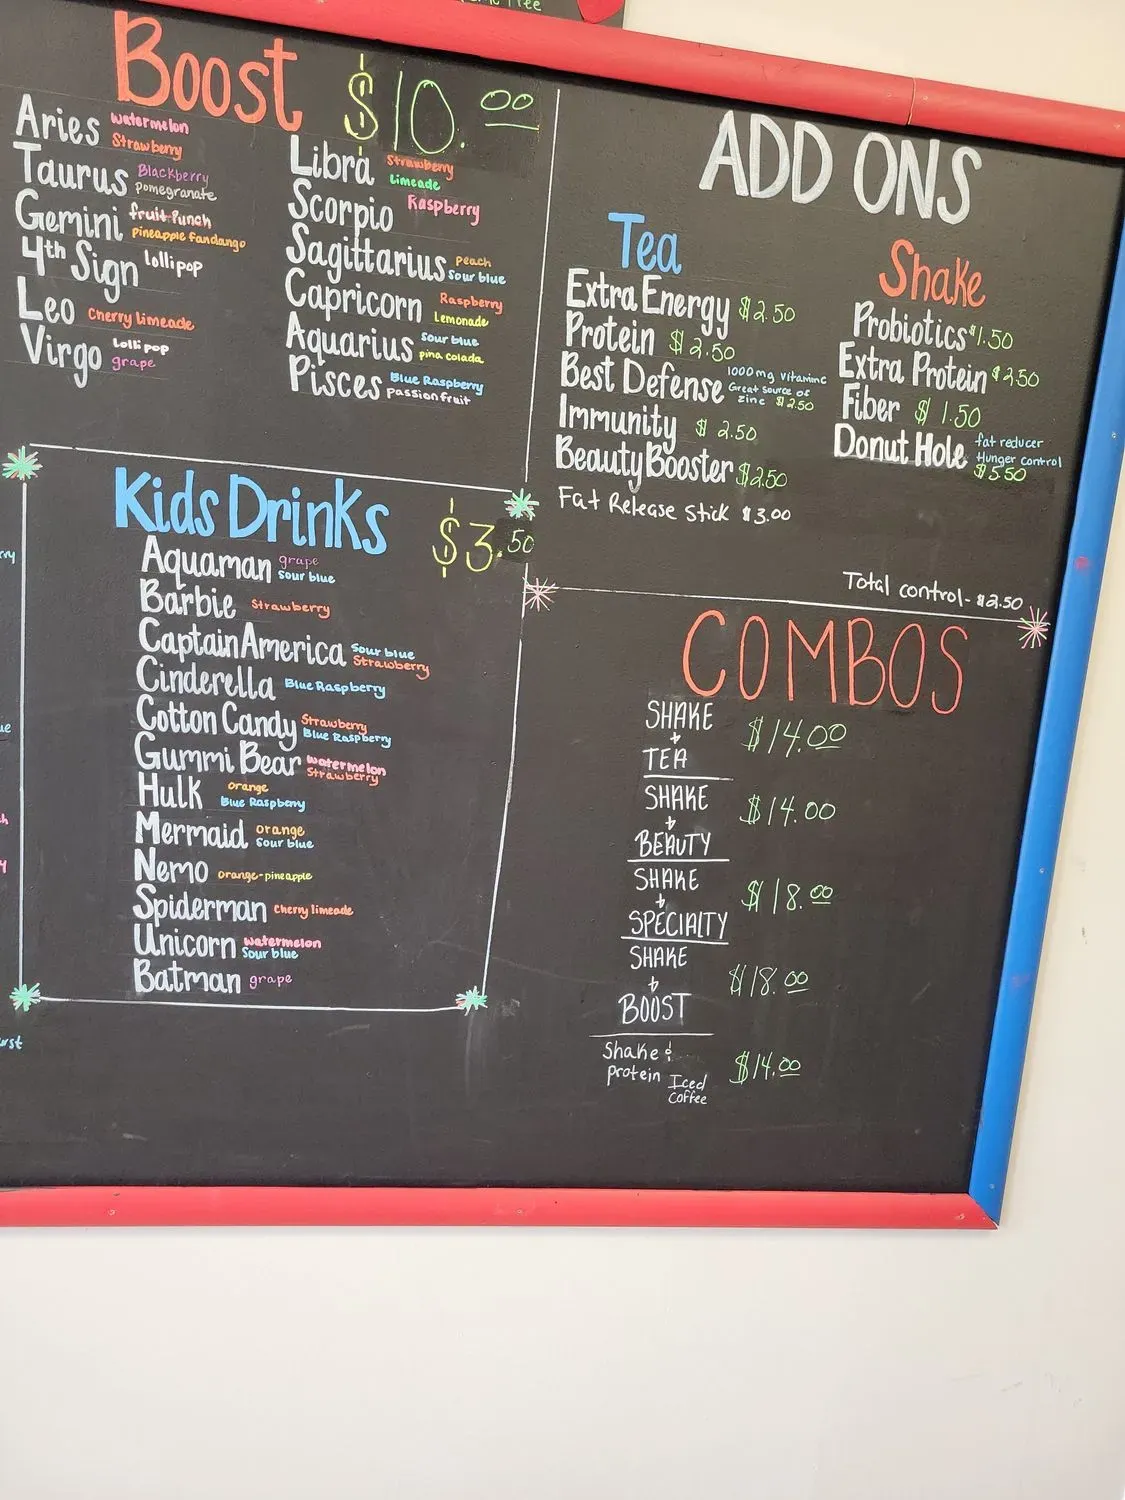 Free
Boost $10.00
Aries watermelon Strawberry
Taurus Blackberry pomegranate
Gemini fruit Punch pineapple fandango
4th Sign lollipop
Leo Cherry limeade
Virgo Lolli pop grape
Libra Strawberry Limeade
Scorpio Raspberry
Sagittarius Peach Sour blue
Capricorn Raspberry Lemonade
Aquarius Sour blue pina colada
Pisces Blue Raspberry passionfruit
Kids Drinks $3.50
Aquaman grape Sour blue
Barbie Strawberry
Captain America Sour blue Strawberry
Cinderella Blue Raspberry
Cotton Candy Strawberry Blue Raspberry
Gummi Bear watermelon Strawberry
Hulk orange Blue Raspberry
Mermaid orange Sour blue
Nemo orange-pineapple
Spiderman Cherry limeade
Unicorn watermelon Sour blue
Batman grape
ADD ONS
Tea
Extra Energy $2.50
Protein $2.50
Best Defense 1000mg vitamin c Great source of zinc $2.50
Immunity $2.50
Beauty Booster $2.50
Fat Release Stick $3.00
Shake
Probiotics $1.50
Extra Protein $2.50
Fiber $1.50
Donut Hole fat reducer Hunger control $5.50
Total control - $2.50
COMBOS
SHAKE
+
TEA
$14.00
SHAKE
+
BEAUTY
$14.00
SHAKE
+
SPECIALTY
$18.00
SHAKE
+
BOOST
$18.00
Shake &
protein Iced
Coffee
$14.00